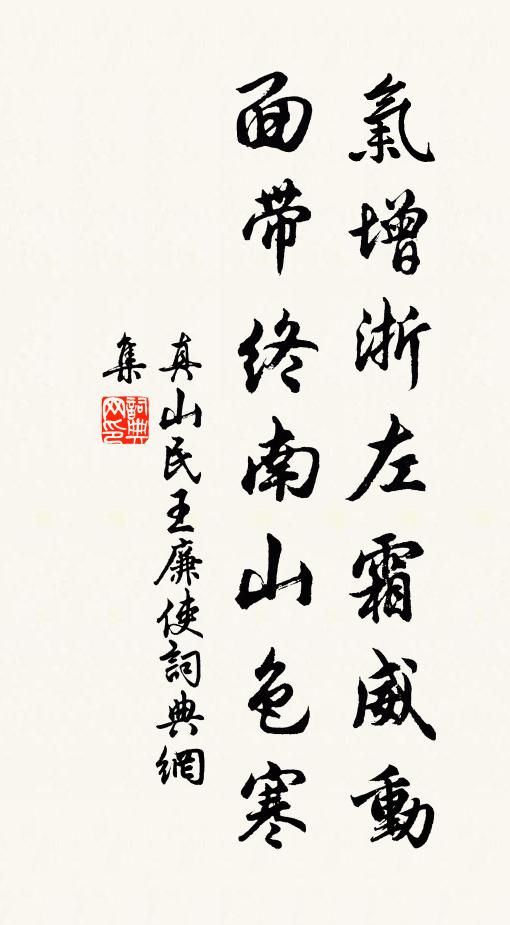 氣增浙左霜威動
面带终南山色寒
真山民王廉使詞典網
集
詞典
网印